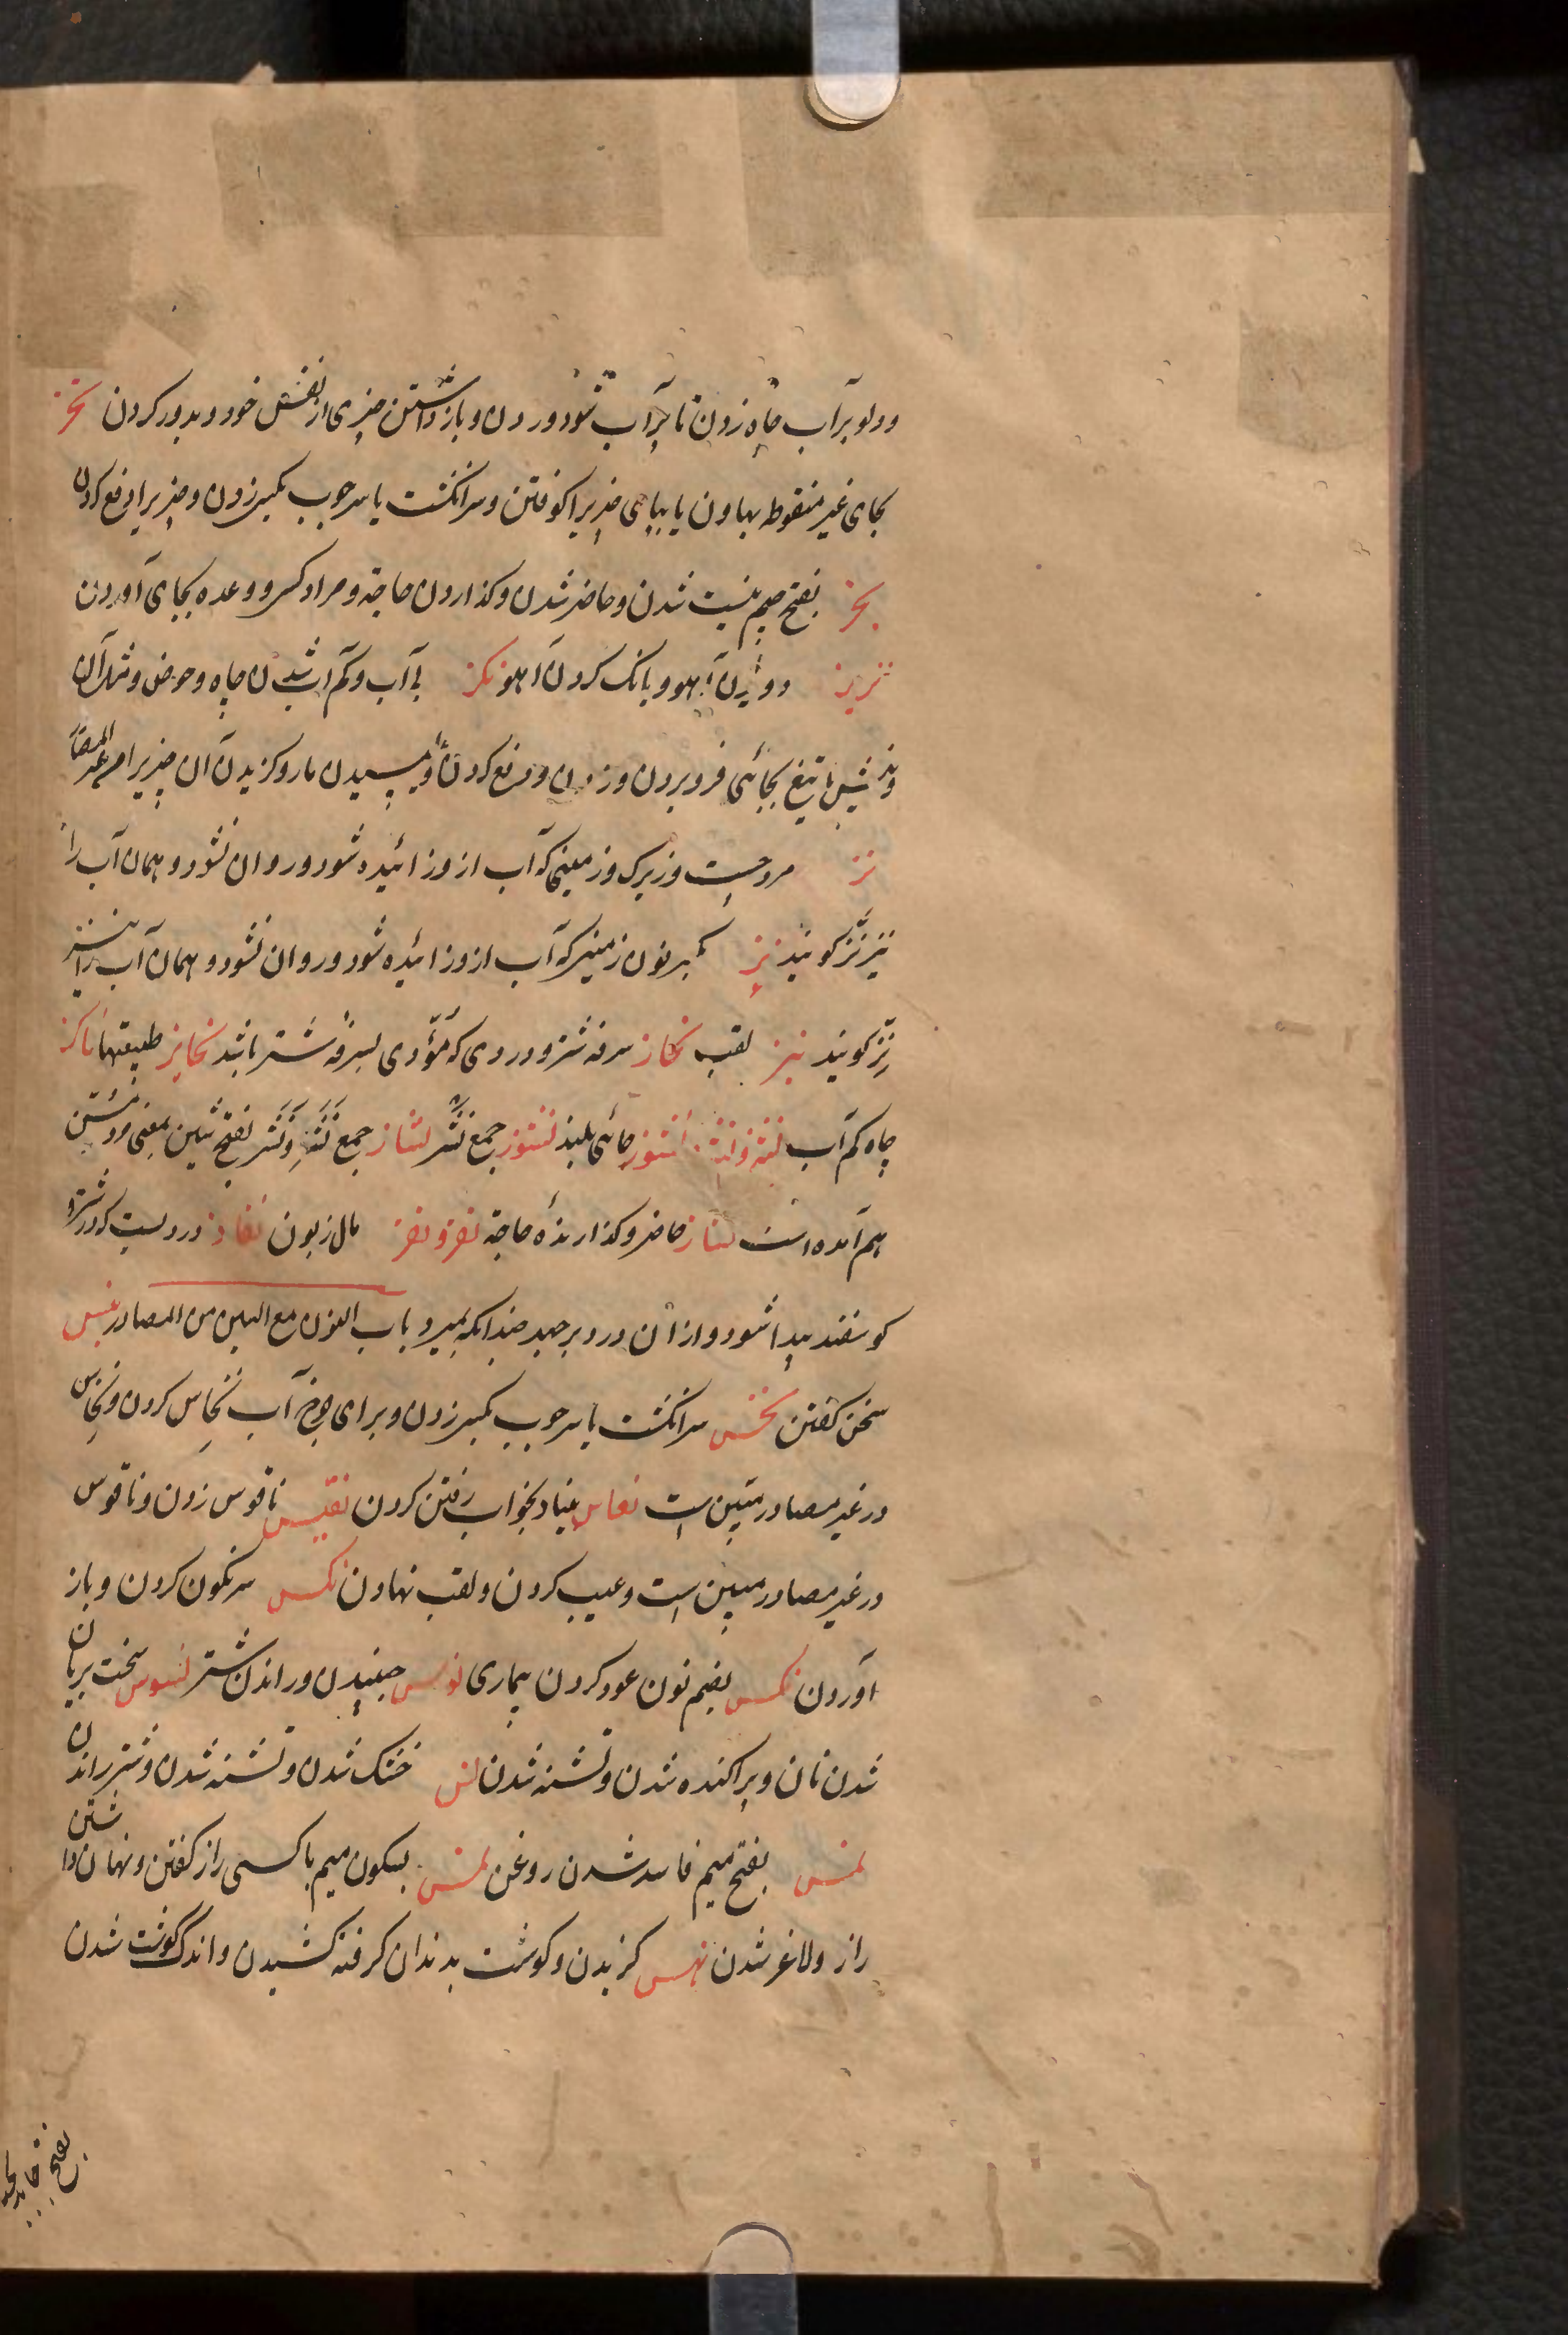 ودلو برآب چاه زدن تا پرآب شود و ردن و بازداشتن چیزی از نفس خود و بدور کردن نحز
بحای غیر منقوطه بهاون یا بپای چیزیرا کوفتن و سرانکشت یا سر چوب بکسی زدن و چیزیرا دفع کردن
نجز بفتح جیم نیست شدن و حاضر شدن و کذاردن حاجة و مراد کسی و وعده بجای آوردن
نزیز دویدن آهو و بانک کردن آهو نکز بی آب و کم آب شدن چاه و حوض و مثل آن
ونیش یا تیغ بجائی فرو بردن و زدن و دفع کردن و پیچیدن مار و کزیدن آن چیزیرا من غیر المصادر
نز مرد چست و زیرک و زمینی که آب از و زائیده شود و روان نشود و همان آب را
نیز نز کویند نز بکسر نون زمینی که آب از و زائیده شود و روان نشود و همان آب را نیز
نز کویند نبز لقب نحاز سرفه شتر و دردی که مؤدی بسرفه شتر باشد نحایز طبیعتها ناکز
چاه کم آب نشز و نشز انشوز جائی بلند نشوز جمع نشز نشاز جمع نشز و نشز بفتح شین بمعنی
هم آمده است ناجز حاضر و کذارنده حاجة نقز و نقز مال زبون نقاز دردیست که در شتر و
کوسفند پیدا شود و از آن درد برجهد چندانکه بمیرد باب النون مع السین من المصادر نبس
سخن کفتن نخس سرانکشت یا سر چوب بکسی زدن و برای چرخ آب نخاس کردن و نخاس
در غیر مصادر مبین است نعاس بنیاد بخواب رفتن کردن نقس ناقوس زدن و ناقوس
در غیر مصادر مبین است و عیب کردن و لقب نهادن نکس سرنکون کردن و باز
آوردن نکس بضم نون عود کردن بیماری نوس جنبیدن و راندن شتر نسوس سخت بریان
شدن نان و پراکنده شدن و تشنه شدن نس خشک شدن و تشنه شدن و شتر راندن
نمس بفتح میم فاسد شدن روغن نمس بسکون میم با کسی راز کفتن و نهان داشتن
راز و لاغر شدن نهس کزیدن و کوشت بدندان کرفته کشیدن و اندک کوشت شدن
بفتح